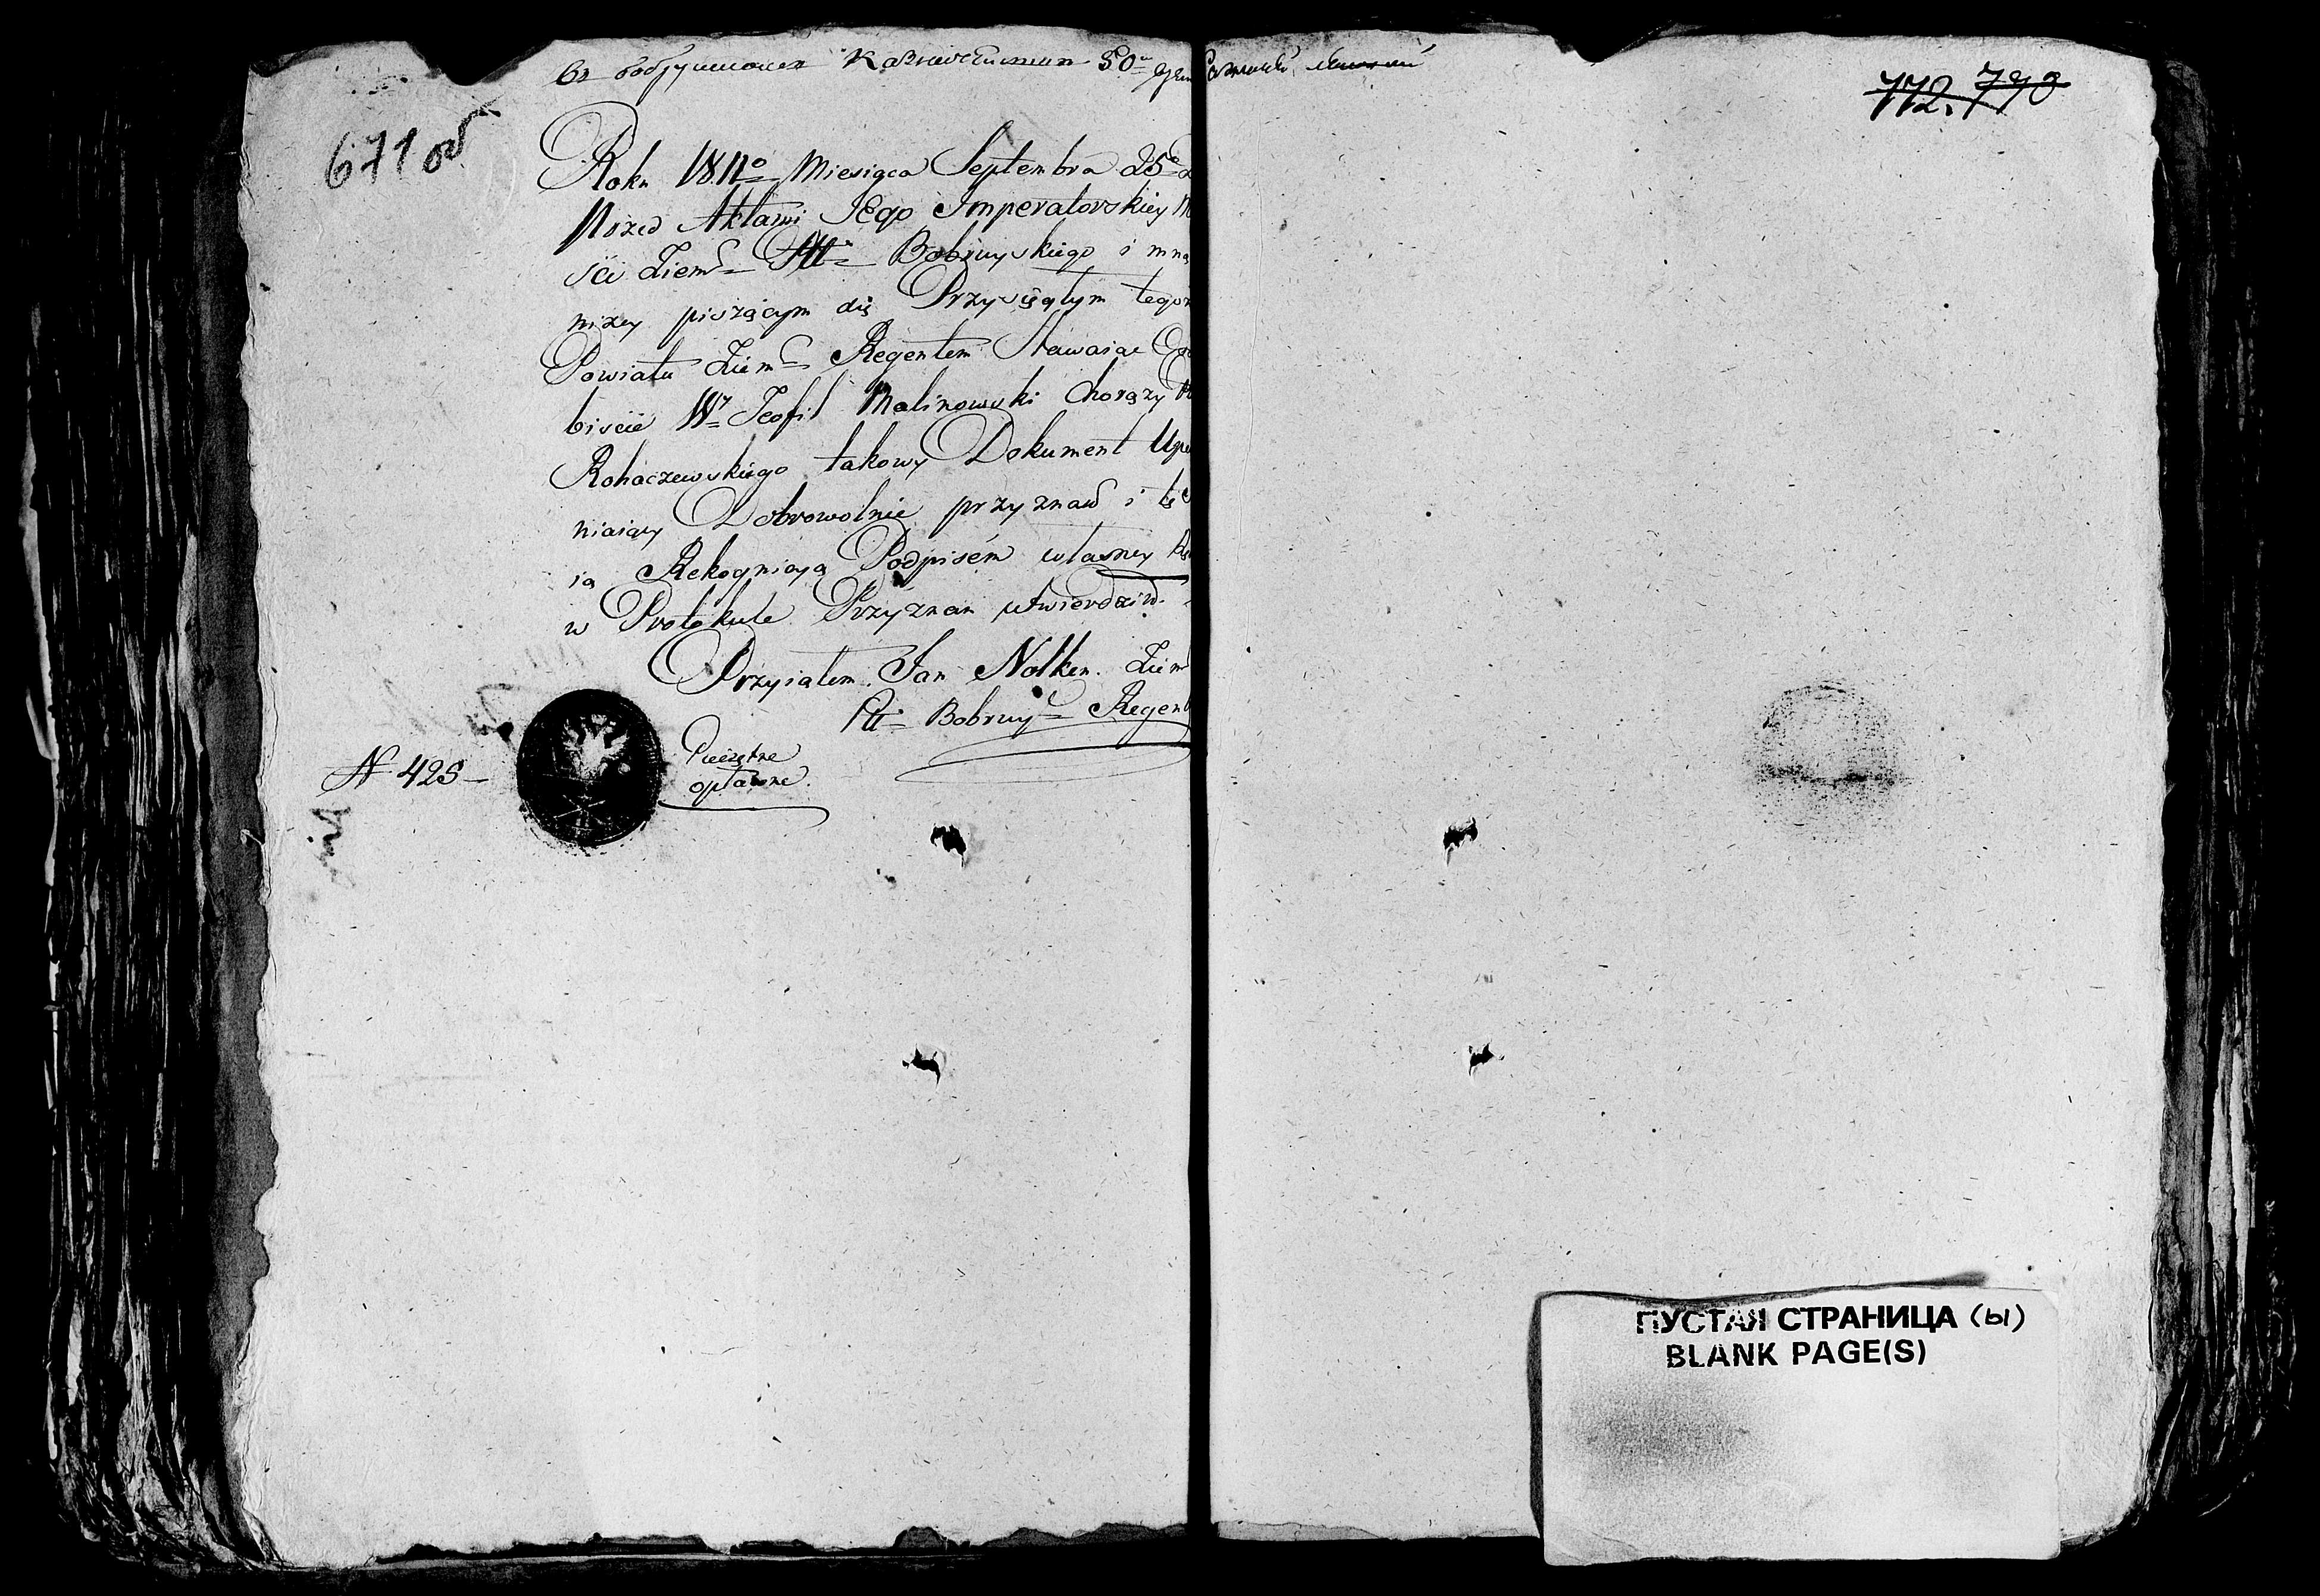 въ бобруйском Казначействи 30
772. 790
671 об
Roku 1811º Miesiąca Septembra 25º
Przed Aktami JEgo Imperatorskiey
ści Ziem Pttu Bobruyskiego i mną
niżey piszącym się Przysięgłym tego
Powiatu Ziem Regentem Stawaiąc
biście W Teofil Malinowski Chorąży
Rohaczewskiego takowy Dokument
niaiący Dobrowolnie przyznał i tę
ią Rekognicyą Podpisem własney
w Protokule Przyznan utwierdził.
Przyiąłem Jan Nolken. Ziem
Pttu Bobruy Regent
Pieczętne
opłacone.
N 425
ПУСТАЯ СТРАНИЦА (Ы)
BLANK PAGE(S)